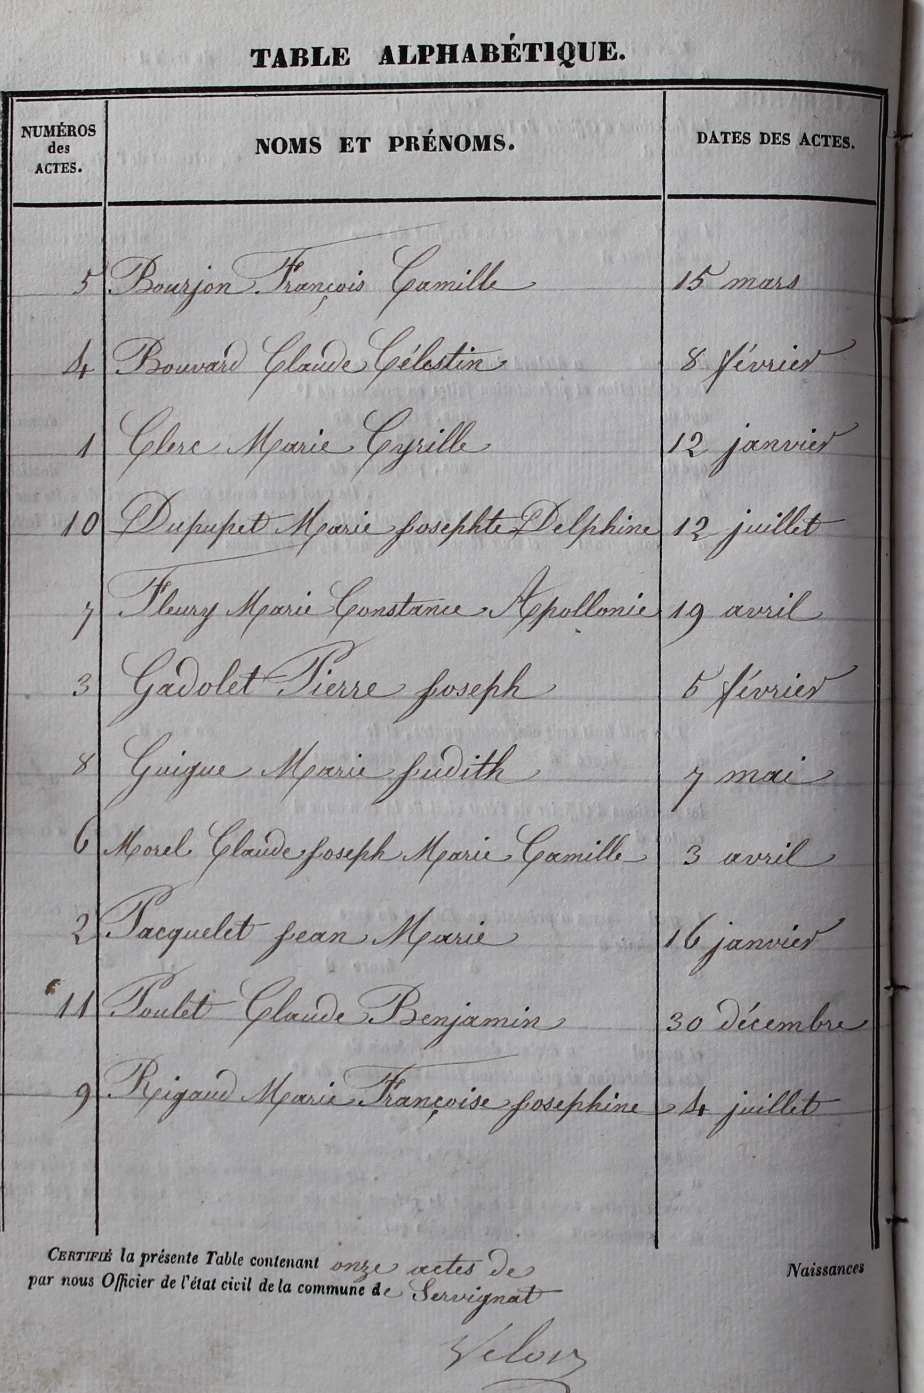 TABLE ALPHABÉTIQUE.
NUMÉROS des ACTES. NOMS ET PRÉNOMS. DATES DES ACTES.
5 Bourjon François Camille 15 mars
4 Bouvard Claude Célestin 8 février
1 Clerc Marie Cyrille 12 janvier
10 Dupupet Marie Josephte Delphine 12 juillet
7 Fleury Marie Constance Apollonie 19 avril
3 Gadolet Pierre Joseph 5 février
8 Guigue Marie Judith 7 mai
6 Morel Claude Joseph Marie Camille 3 avril
2 Pacquelet Jean Marie 16 janvier
11 Poulet Claude Benjamin 30 décembre
9 Rigaud Marie Françoise Josephine 4 juillet
CERTIFIÉ la présente Table contenant onze actes de Naissances
par nous Officier de l'état civil de la commune de Servignat